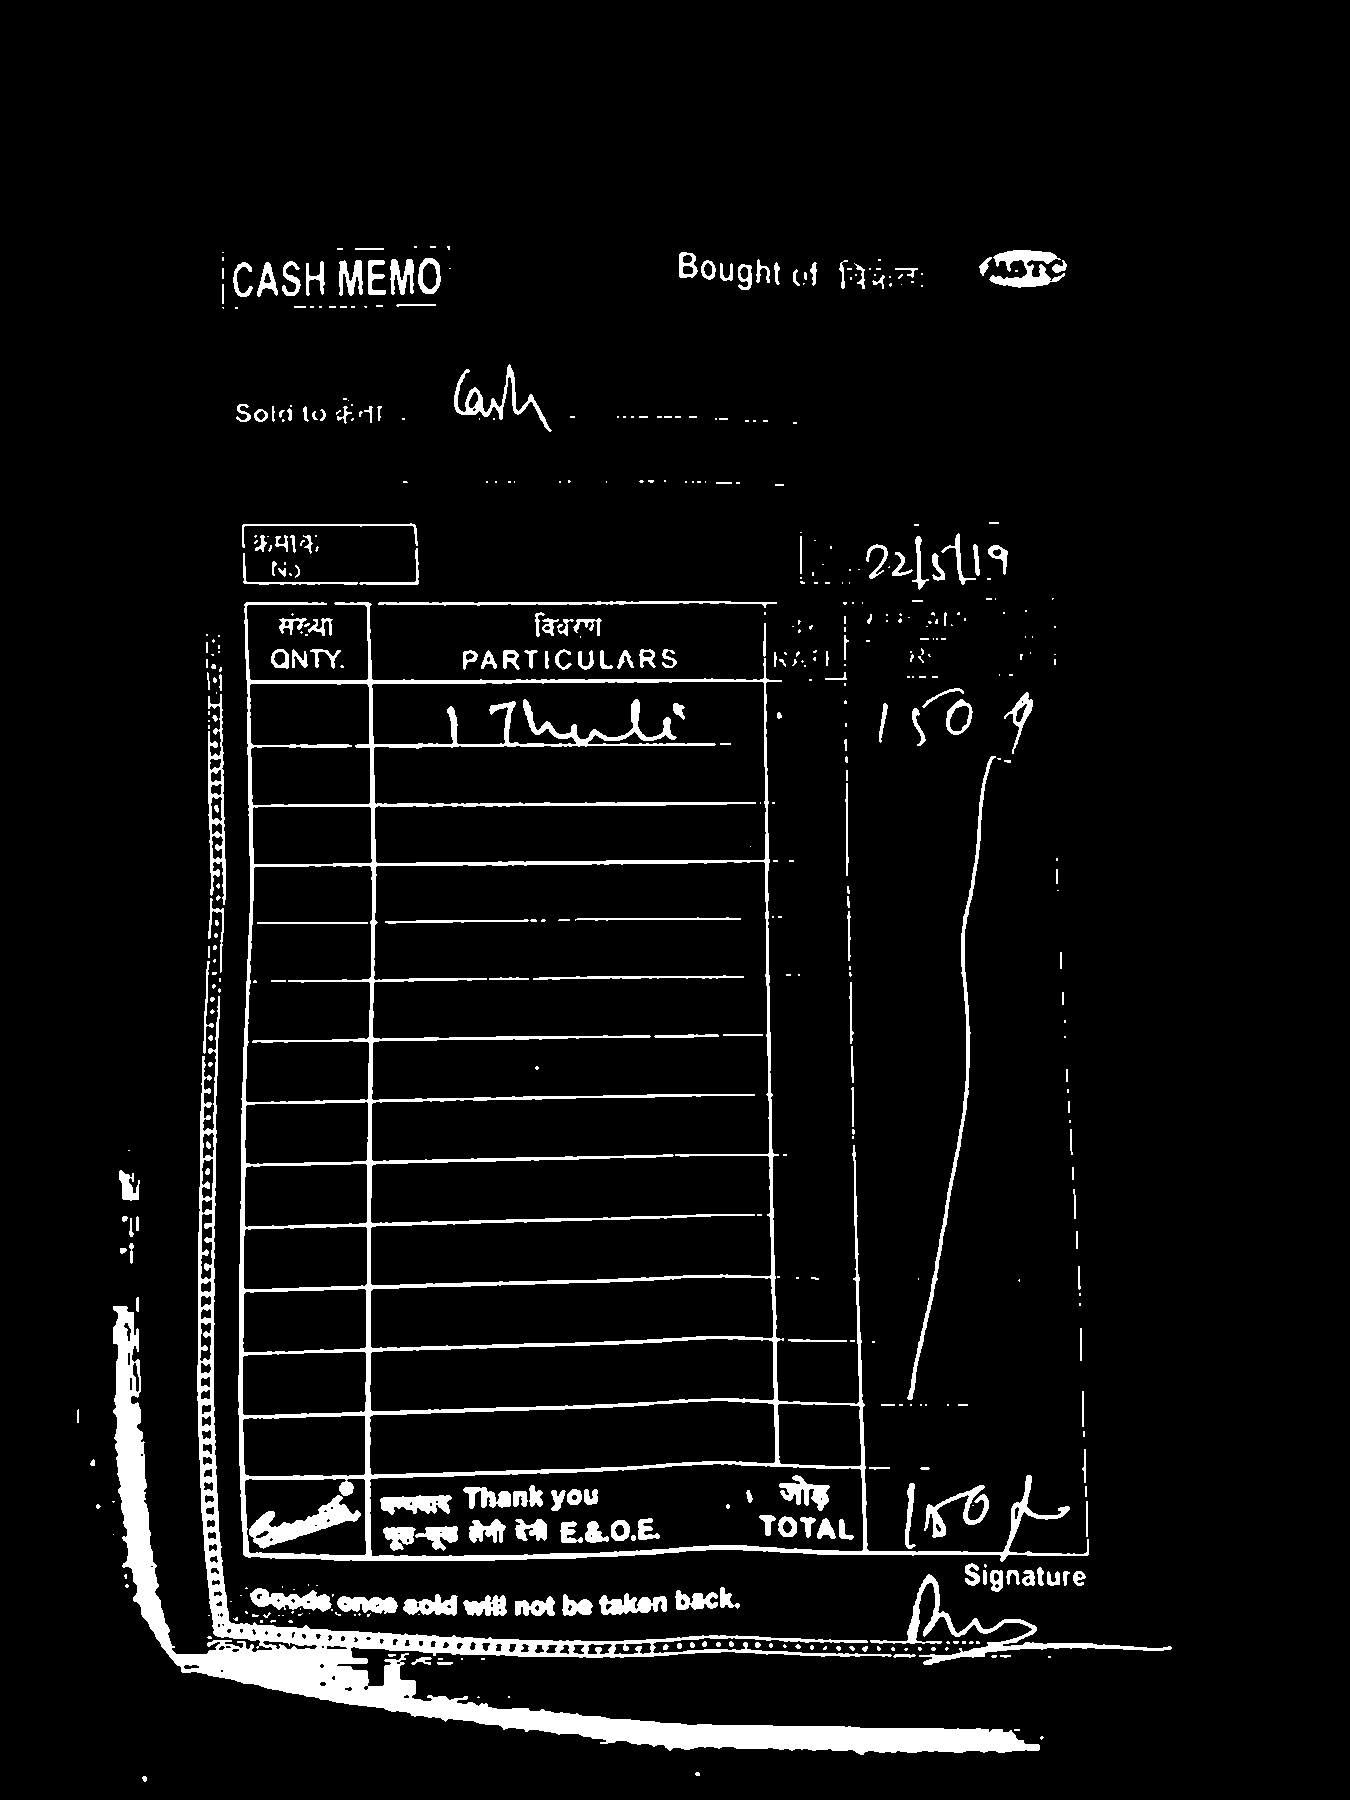 CASH MEMO
Bought of विक्रेता
MSTC
Sold to क्रेता Cash
क्रमांक
No
22/5/19
संख्या विवरण
QNTY. PARTICULARS RATE Rs.
1 150
धन्यवाद Thank you जोड़
भूल-चूक लेनी देनी E.&.O.E. TOTAL
150
Signature
Goods once sold will not be taken back.